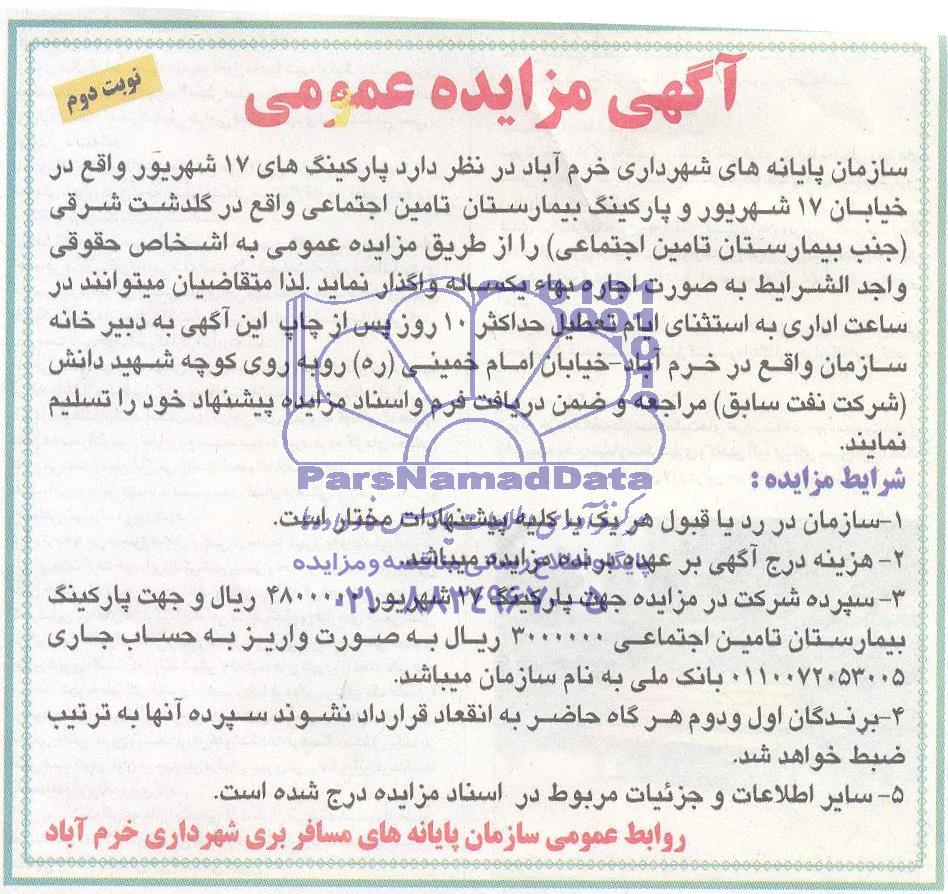 آگهی مزایده عمومی
نوبت دوم
سازمان پایانه های شهرداری خرم آباد در نظر دارد پارکینگ های ۱۷ شهریور واقع در
خیابان ۱۷ شهریور و پارکینگ بیمارستان تامین اجتماعی واقع در گلدشت شرقی
(جنب بیمارستان تامین اجتماعی) را از طریق مزایده عمومی به اشخاص حقوقی
واجد الشرایط به صورت اجاره بهاء یکساله واگذار نماید .لذا متقاضیان میتوانند در
ساعت اداری به استثنای ایام تعطیل حداکثر ۱۰ روز پس از چاپ این آگهی به دبیر خانه
سازمان واقع در خرم آباد-خیابان امام خمینی (ره) روبه روی کوچه شهید دانش
(شرکت نفت سابق) مراجعه و ضمن دریافت فرم واسناد مزایده پیشنهاد خود را تسلیم
نمایند.
ParsNamadData
شرایط مزایده :
۱-سازمان در رد یا قبول هر یک یا کلیه پیشنهادات مختار است.
۲- هزینه درج آگهی بر عهده برنده مزایده میباشد.
پایگاه اطلاع رسانی مناقصه و مزایده
۳-سپرده شرکت در مزایده جهت پارکینگ ۱۷ شهریور ریال و جهت پارکینگ
۰۲۱-۸۸۳۴۹۶۷۰-۵
بیمارستان تامین اجتماعی ۳۰۰۰۰۰۰ ریال به صورت واریز به حساب جاری
۰۱۱۰۰۷۲۰۵۳۰۰۵ بانک ملی به نام سازمان میباشد.
۴-برندگان اول ودوم هر گاه حاضر به انقعاد قرارداد نشوند سپرده آنها به ترتیب
ضبط خواهد شد.
۵- سایر اطلاعات و جزئیات مربوط در اسناد مزایده درج شده است.
روابط عمومی سازمان پایانه های مسافر بری شهرداری خرم آباد